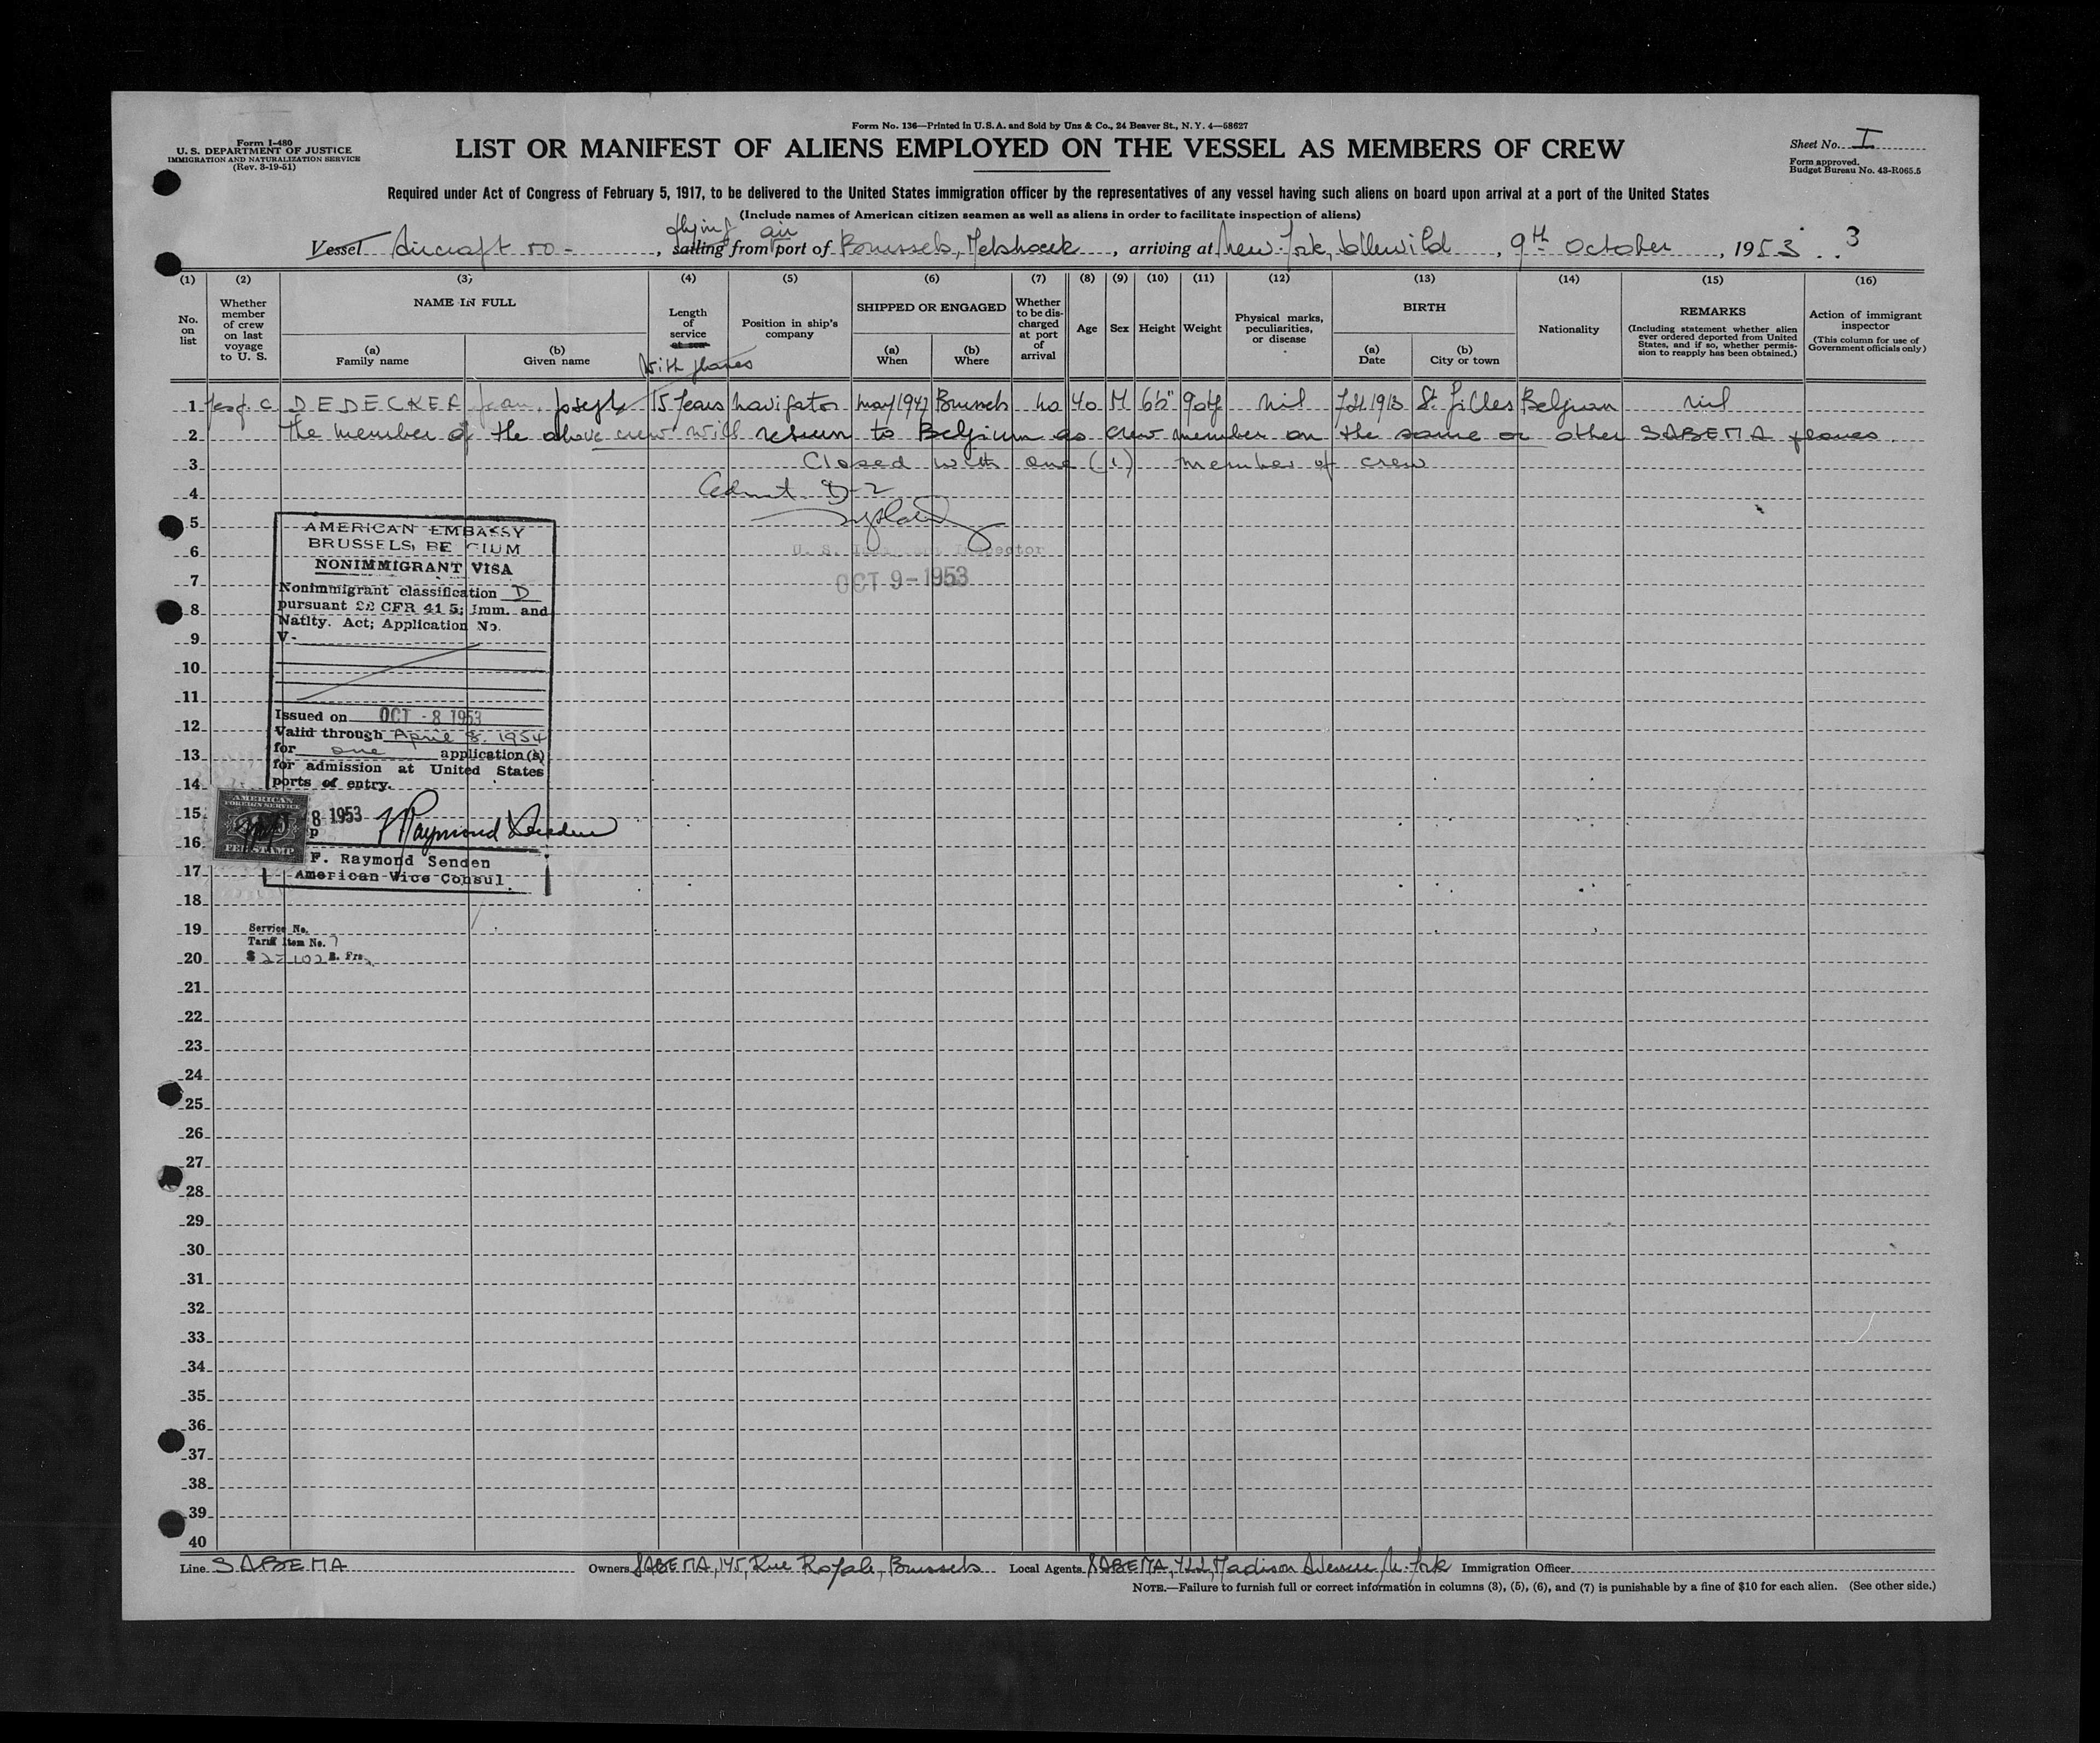 Form No. 136—Printed in U.S.A. and Sold by Unz & Co., 24 Beaver St., N. Y. 4—58627
Form I-480
U. S. DEPARTMENT OF JUSTICE
IMMIGRATION AND NATURALIZATION SERVICE
(Rev. 3-19-51)
LIST OR MANIFEST OF ALIENS EMPLOYED ON THE VESSEL AS MEMBERS OF CREW
Sheet No. I
Form approved.
Budget Bureau No. 43-R065.5
Required under Act of Congress of February 5, 1917, to be delivered to the United States immigration officer by the representatives of any vessel having such aliens on board upon arrival at a port of the United States
(Include names of American citizen seamen as well as aliens in order to facilitate inspection of aliens)
flying air
Vessel Aircraft OO- , sailing from port of Brussels, Melsbroek , arriving at New-York, Idlewild , 9th October , 1953 3
(1) (2) (3) (4) (5) (6) (7) (8) (9) (10) (11) (12) (13) (14) (15) (16)
No. on list
Whether member of crew on last voyage to U. S.
NAME IN FULL
(a) Family name
(b) Given name
Length of service at sea
With planes
Position in ship's company
SHIPPED OR ENGAGED
(a) When
(b) Where
Whether to be discharged at port of arrival
Age
Sex
Height
Weight
Physical marks, peculiarities, or disease
BIRTH
(a) Date
(b) City or town
Nationality
REMARKS
(Including statement whether alien ever ordered deported from United States, and if so, whether permission to reapply has been obtained.)
Action of immigrant inspector
(This column for use of Government officials only)
1 DEDECKER Jean, Joseph 15 Years navigator may 1947 Brussels no 40 M nil 1913 St. Gilles Belgian nil
2 The member of the above crew will return to Belgium as crew member on the same or other SABENA planes.
3 Closed with one (1) member of crew
4 Admit D-2
5
6 U. S. Immigrant Inspector
7 OCT 9-1953
8
9
10
11
12
13
14
15
16
17
18
19
20
21
22
23
24
25
26
27
28
29
30
31
32
33
34
35
36
37
38
39
40
AMERICAN EMBASSY
BRUSSELS, BELGIUM
NONIMMIGRANT VISA
Nonimmigrant classification D
pursuant 22 CFR 41 5; Imm. and
Natlty. Act; Application No.
V-
Issued on OCT - 8 1953
Valid through April 8. 1954
for one application(s)
for admission at United States
ports of entry.
AMERICAN
FOREIGN SERVICE
FEE STAMP
8 1953
F. Raymond Senden
F. Raymond Senden
American Vice Consul
Service No.
Tariff Item No. 7
B. Frs.
Line SABENA
Owners SABENA, 145, Rue Royale, Brussels
Local Agents SABENA, 422, Madison Avenue, N. York
Immigration Officer
NOTE.—Failure to furnish full or correct information in columns (3), (5), (6), and (7) is punishable by a fine of $10 for each alien. (See other side.)